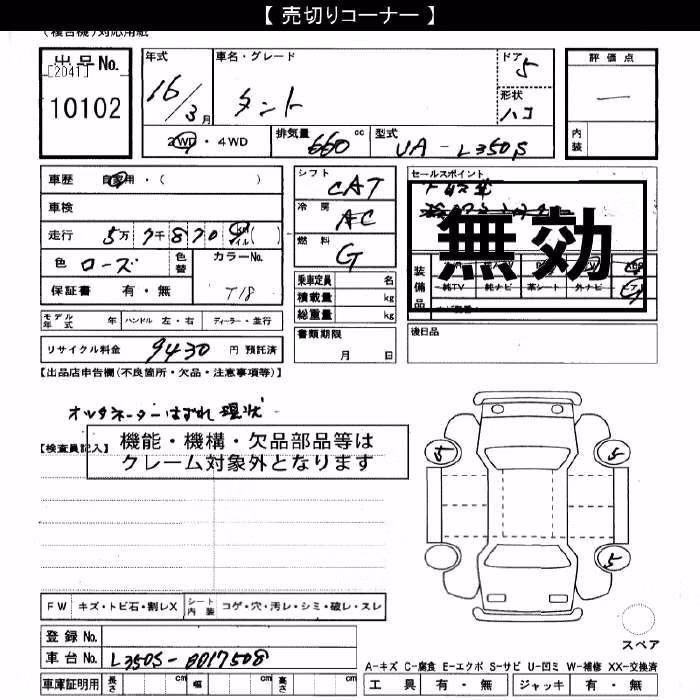 【 売切りコーナー 】
(複合機)対応用紙
出品No.
[2041]
10102
年式
16/3月
車名・グレード
タント
ドア
5
形状
ハコ
評価点
内装
2WD・4WD
排気量 660 cc
型式 UA-L350S
車歴 自家用・( )
車検
走行 5万7千870
色 ローズ
色替
カラーNo.
T18
保証書 有・無
シフト CAT
冷房 AC
燃料 G
乗車定員 名
積載量 kg
総重量 kg
セールスポイント
無効
装備品
純TV 純ナビ 革シート 外ナビ
モデル年式 年 ハンドル 左・右 ディーラー・並行
リサイクル料金 9430 円 預託済
書類期限
月 日
後日品
【出品店申告欄(不良箇所・欠品・注意事項等)】
オルタネーターはずれ 現状
【検査員記入】
機能・機構・欠品部品等は
クレーム対象外となります
5
5
5
FW キズ・トビ石・割レX シート内装 コゲ・穴・汚レ・シミ・破レ・スレ
スペア
登録No.
車台No. L350S-0017508
車庫証明用 長さ cm 幅 cm 高さ cm
A-キズ C-腐食 E-エクボ S-サビ U-凹ミ W-補修 XX-交換済
工具 有・無 ジャッキ 有・無